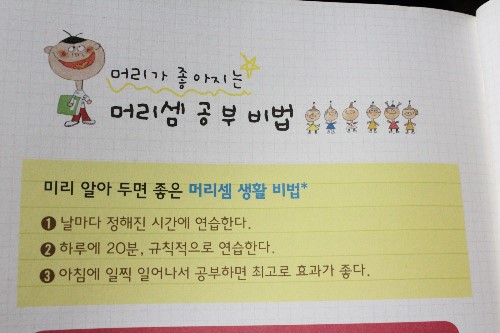 머리가 좋아지는
머리셈 공부 비법
미리 알아 두면 좋은 머리셈 생활 비법*
1 날마다 정해진 시간에 연습한다.
2 하루에 20분, 규칙적으로 연습한다.
3 아침에 일찍 일어나서 공부하면 최고로 효과가 좋다.